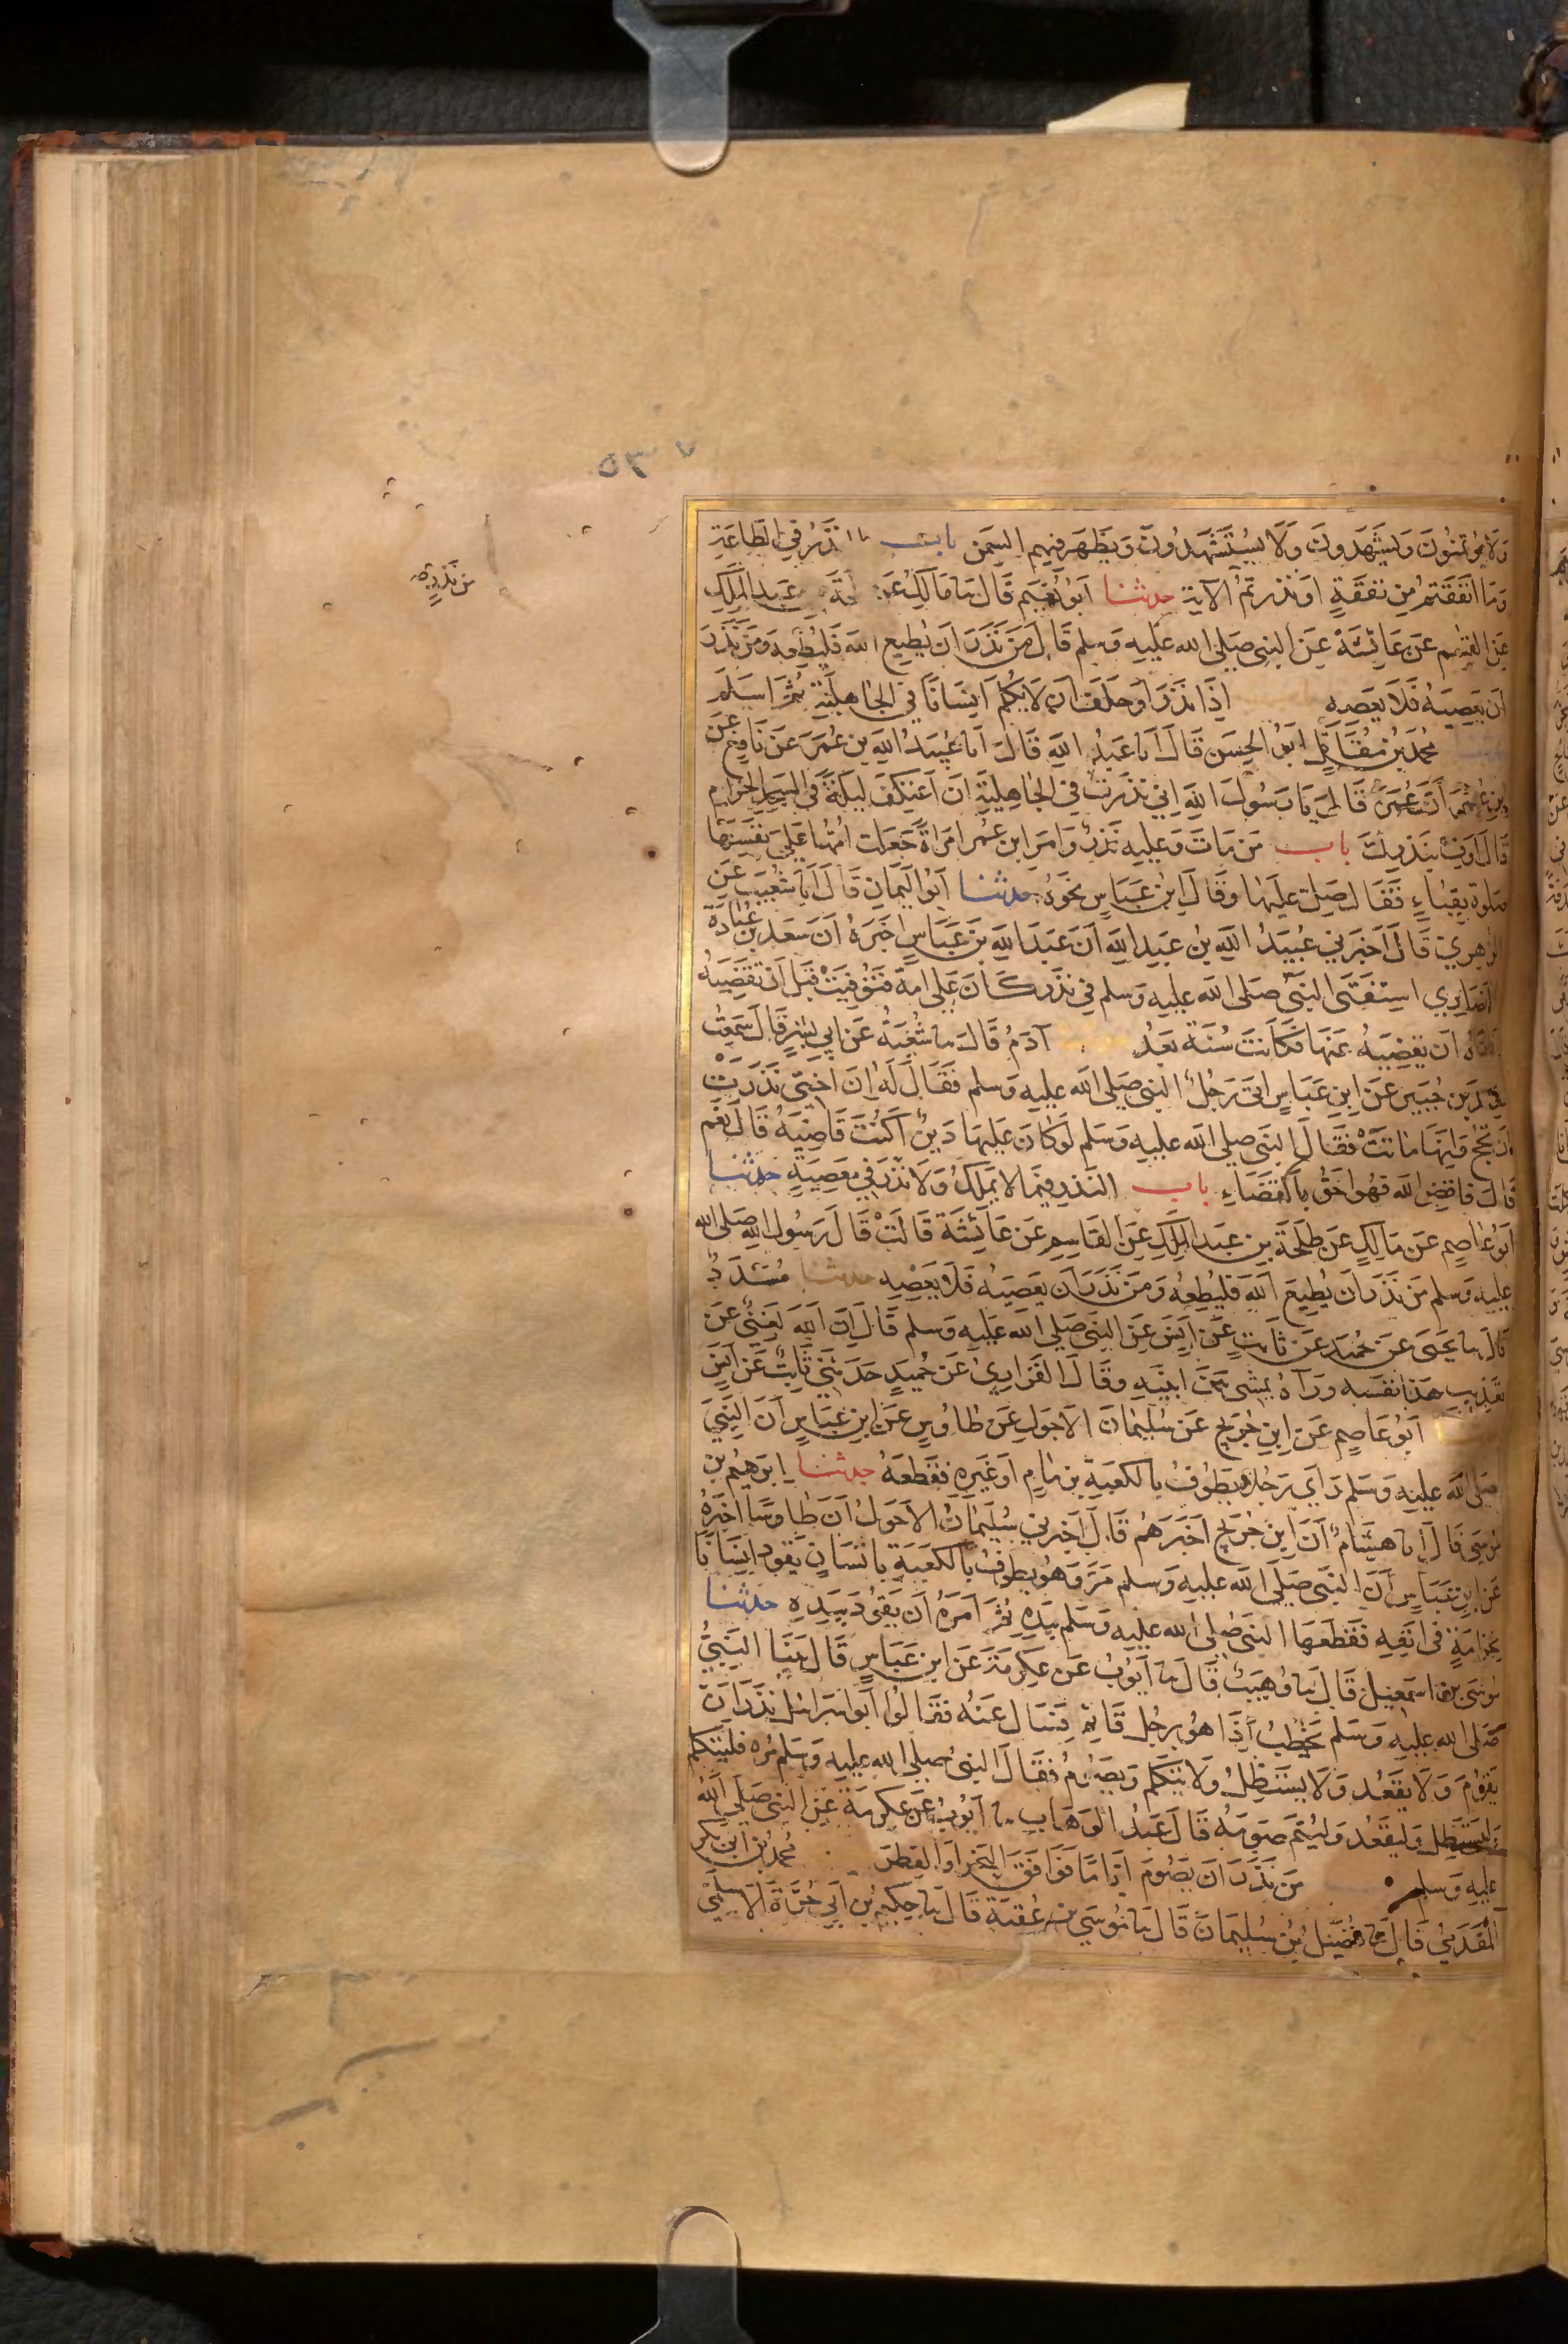 ٧٣٥
ولا يؤتمنون ويشهدون ولا يستشهدون ويظهر فيهم السمن باب النذر في الطاعة
وما انفقتم من نفقة او نذرتم الآية حدثنا ابو نعيم قال نا مالك عن طلحة بن عبد الملك
عن القسم عن عائشة عن النبي صلى الله عليه وسلم قال من نذر ان يطيع الله فليطعه ومن نذر
ان يعصيه فلا يعصه اذا نذر او حلف ان لا يكلم انسانا في الجاهلية ثم اسلم
محمد بن مقاتل ابو الحسن قال انا عبد الله قال انا عبيد الله بن عمر عن نافع عن
ابن عمر ان عمر قال يا رسول الله اني نذرت في الجاهلية ان اعتكف ليلة في المسجد الحرام
قال اوف بنذرك باب من مات وعليه نذر وامر ابن عمر امراة جعلت امها على نفسها
صلوة بقباء فقال صلي عليها وقال ابن عباس نحوه حدثنا ابو اليمان قال انا شعيب عن
الزهري قال اخبرني عبيد الله بن عبد الله ان عبد الله بن عباس اخبره ان سعد بن عبادة
الانصاري استفتى النبي صلى الله عليه وسلم في نذر كان على امه فتوفيت قبل ان تقضيه
فافتاه ان يقضيه عنها فكانت سنة بعد آدم قال نا شعبة عن ابي بشر قال سمعت
سعيد بن جبير عن ابن عباس اتى رجل النبي صلى الله عليه وسلم فقال له ان اختي نذرت
ان تحج وانها ماتت فقال النبي صلى الله عليه وسلم لو كان عليها دين اكنت قاضيه قال نعم
قال فاقض الله فهو احق بالقضاء باب النذر فيما لا يملك ولا نذر في معصية حدثنا
ابو عاصم عن مالك عن طلحة بن عبد الملك عن القاسم عن عائشة قالت قال رسول الله صلى الله
عليه وسلم من نذر ان يطيع الله فليطعه ومن نذر ان يعصيه فلا يعصه حدثنا مسدد
قال نا يحيى عن حميد عن ثابت عن انس عن النبي صلى الله عليه وسلم قال ان الله لغني عن
تعذيب هذا نفسه ورآه يمشي بين ابنيه وقال الفزاري عن حميد حدثني ثابت عن انس
ابو عاصم عن ابن جريج عن سليمان الاحول عن طاوس عن ابن عباس ان النبي
صلى الله عليه وسلم راى رجلا يطوف بالكعبة بزمام او غيره فقطعه حدثنا ابرهيم بن
موسى قال انا هشام ان ابن جريج اخبرهم قال اخبرني سليمان الاحول ان طاوسا اخبره
عن ابن عباس ان النبي صلى الله عليه وسلم مر وهو يطوف بالكعبة بانسان يقود انسانا
بخزامة في انفه فقطعها النبي صلى الله عليه وسلم بيده ثم امره ان يقود بيده حدثنا
موسى بن اسمعيل قال نا وهيب قال نا ايوب عن عكرمة عن ابن عباس قال بينا النبي
صلى الله عليه وسلم يخطب اذا هو برجل قائم فسال عنه فقالوا ابو اسرائل نذر ان
يقوم ولا يقعد ولا يستظل ولا يتكلم ويصوم فقال النبي صلى الله عليه وسلم مره فليتكلم
وليستظل وليقعد وليتم صومه قال عبد الوهاب نا ايوب عن عكرمة عن النبي صلى الله
عليه وسلم من نذر ان يصوم اياما فوافق النحر او الفطر محمد بن ابي بكر
المقدمي قال نا فضيل بن سليمان قال نا موسى بن عقبة قال نا حكيم بن ابي حرة الاسلمي
من نذره